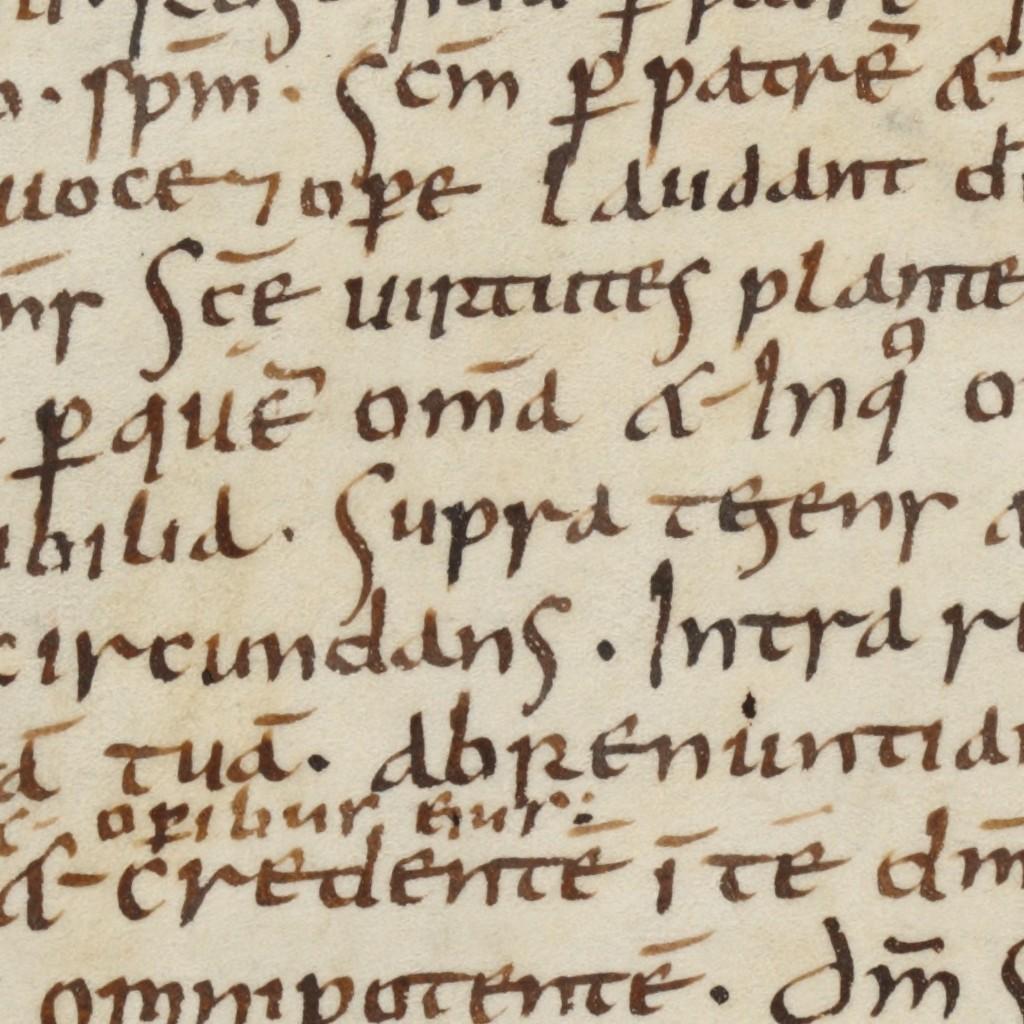 . sp̄m . Sc̄m ꝑ patrē &
uoce ⁊ ope laudant
Sc̄e uirtutes plante
ꝑ quē om̄a & Inqͦ
ibilia . Supra tegens
circundans . Intra
tuā . abrenuntia
& operibus eius :
& credente ī te dm̄
omnipotentē . dm̄